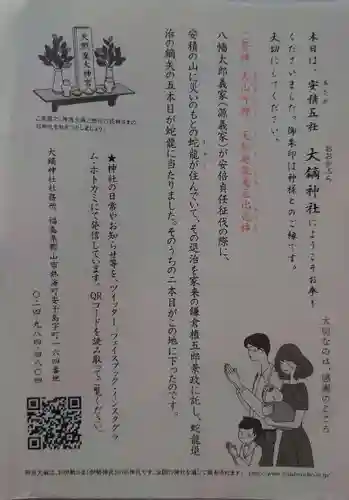 本日は、安積五社 大鏑神社にようこそお参り
あさか
おおかぶら
くださいました。御朱印は神様とのご縁です。
大切にしてください。
八幡太郎義家（源義家）が安倍貞任征伐の際に、
安積の山に災いのもとの蛇龍が住んでいて、その退治を家来の鎌倉権五郎景政に託し、蛇龍退
治の鏑矢の五本目が蛇龍に当たりました。そのうちの二本目がこの地に下ったのです。
★神社の日常やお知らせ等を、ツイッター・フェイスブック・インスタグラ
ム・ホトカミにて発信しています。QRコードを読み取ってご覧ください。
大鏑神社社務所 福島県郡山市熱海町安子島字町一六四番地
〇二四-九八四-四八〇四
大切なのは、感謝のこころ
天照皇大神宮